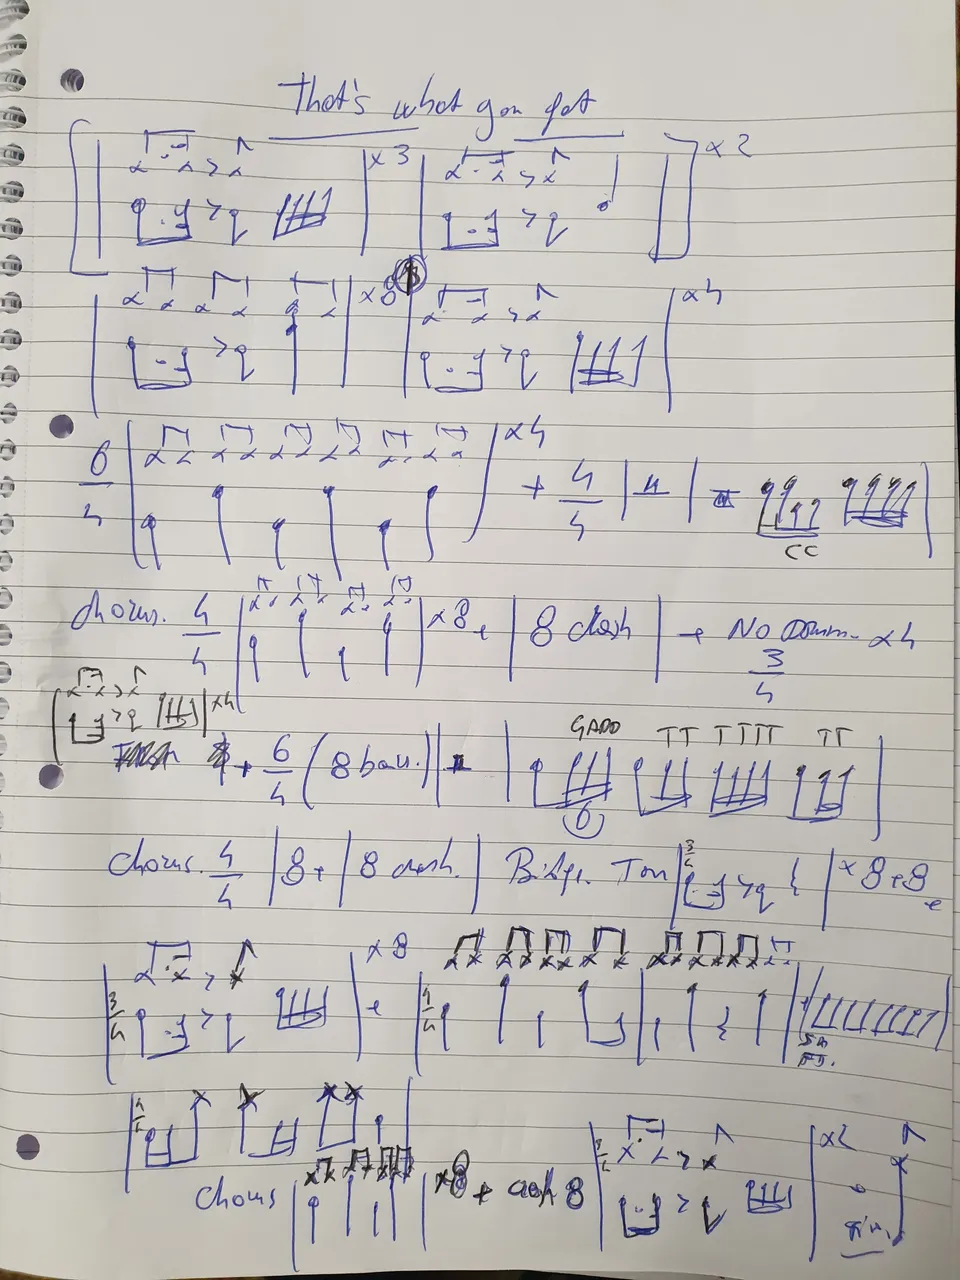 That's what you get
x3 x2
x8 x4
6/4 x4 + 4/4 | 4 |
CC
Chorus. 4/4 x8 + | 8 crash | + No Drum x4
3/4
x4
+ 6/4 (8 bars.) TT TTTT TT
6
Chorus. 4/4 | 8 + | 8 crash. | Bridge. Tom 3/4 x8+8
3/4 x8 + 4/4
4/4
Chorus x8 + crash 8 3/4 x2
Fin.